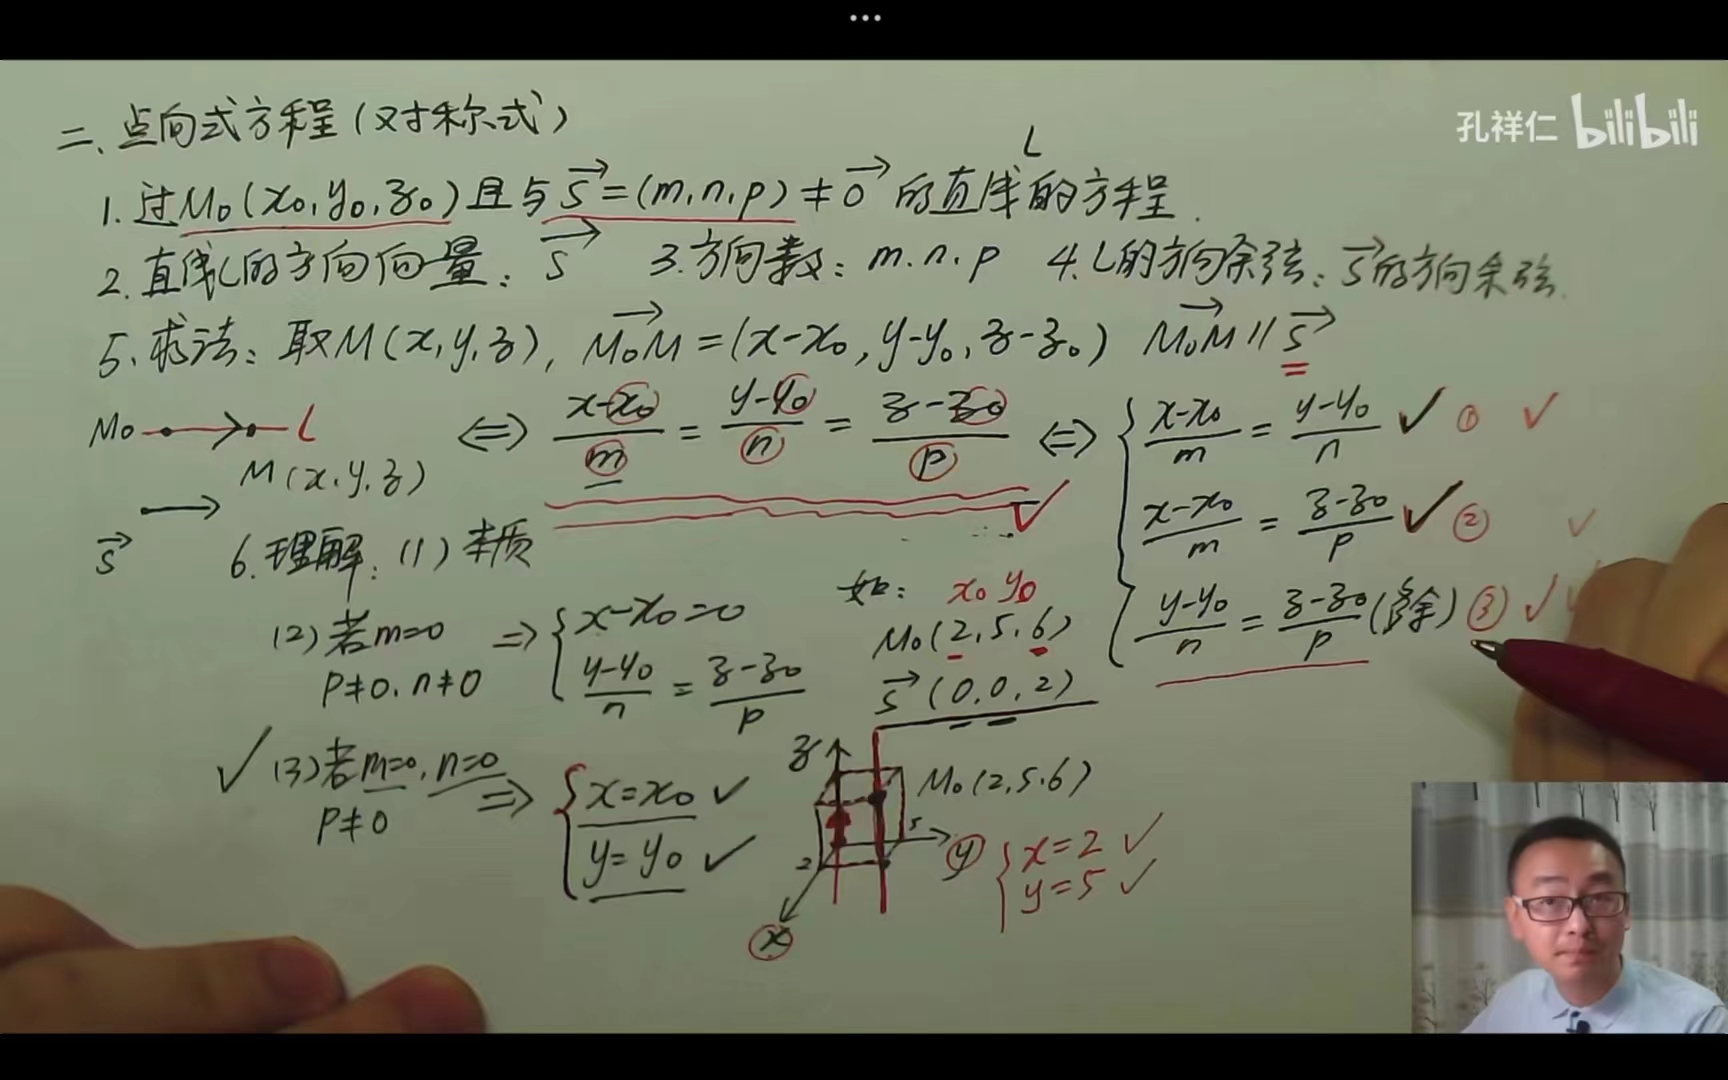 ...
孔祥仁 bilibili
二、点向式方程(对称式)
L
1.过M₀(x₀,y₀,z₀)且与s⃗=(m,n,p)≠0⃗的直线的方程.
2.直线L的方向向量:s⃗ 3.方向数:m.n.p 4.L的方向余弦:s⃗的方向余弦.
5.求法:取M(x,y,z), M₀M⃗=(x-x₀,y-y₀,z-z₀) M₀M⃗∥s⃗
M₀ L ⇔ (x-x₀)/m = (y-y₀)/n = (z-z₀)/p ⇔ { (x-x₀)/m = (y-y₀)/n ✓ ① ✓
M(x,y,z)
(x-x₀)/m = (z-z₀)/p ✓ ② ✓
s⃗ 6.理解:(1)本质
(y-y₀)/n = (z-z₀)/p ③ ✓
(2)若m=0 ⇒ { x-x₀=0
p≠0.n≠0 (y-y₀)/n = (z-z₀)/p
如: x₀ y₀
M₀(2,5,6)
s⃗(0,0,2)
✓(3)若m=0,n=0 ⇒ { x=x₀ ✓
p≠0 y=y₀ ✓
z M₀(2,5,6)
5
2 y
x
{ x=2 ✓
y=5 ✓